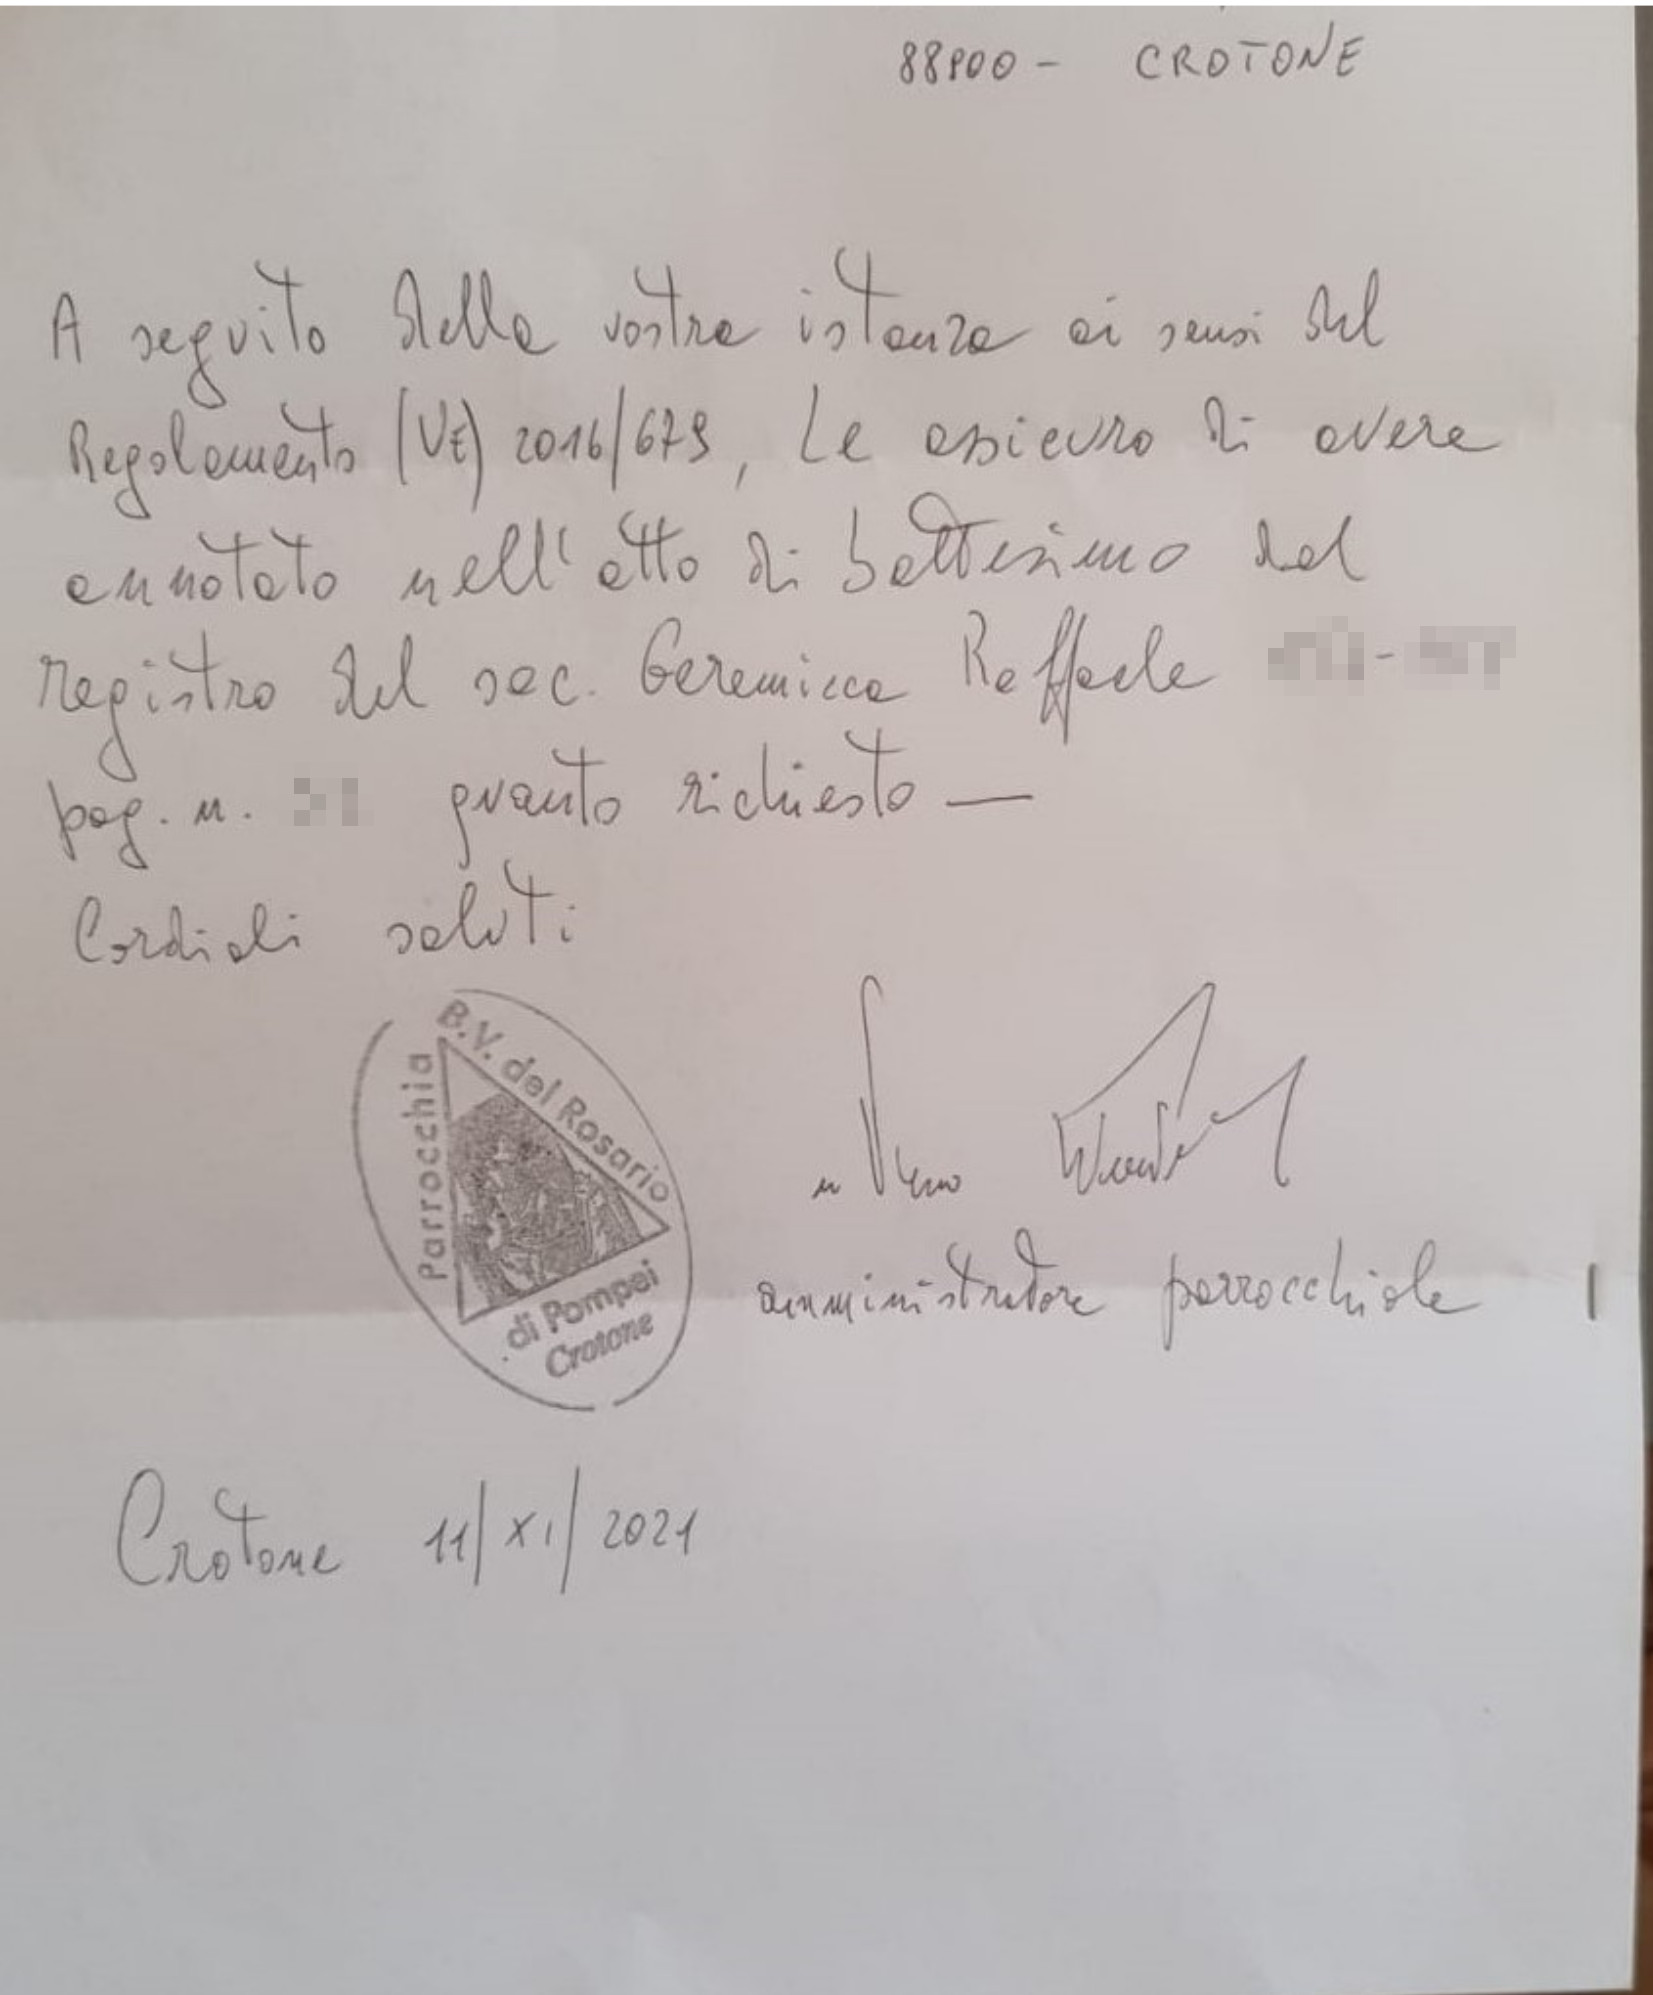 88900 - CROTONE
A seguito della vostra istanza ai sensi del
Regolamento (UE) 2016/679, Le assicuro di avere
annotato nell'atto di battesimo del
registro del sac. Geremicca Raffaele
pag. n. quanto richiesto —
Cordiali saluti
Parrocchia
B.V. del Rosario
di Pompei
Crotone
amministratore parrocchiale
Crotone 11/XI/2021